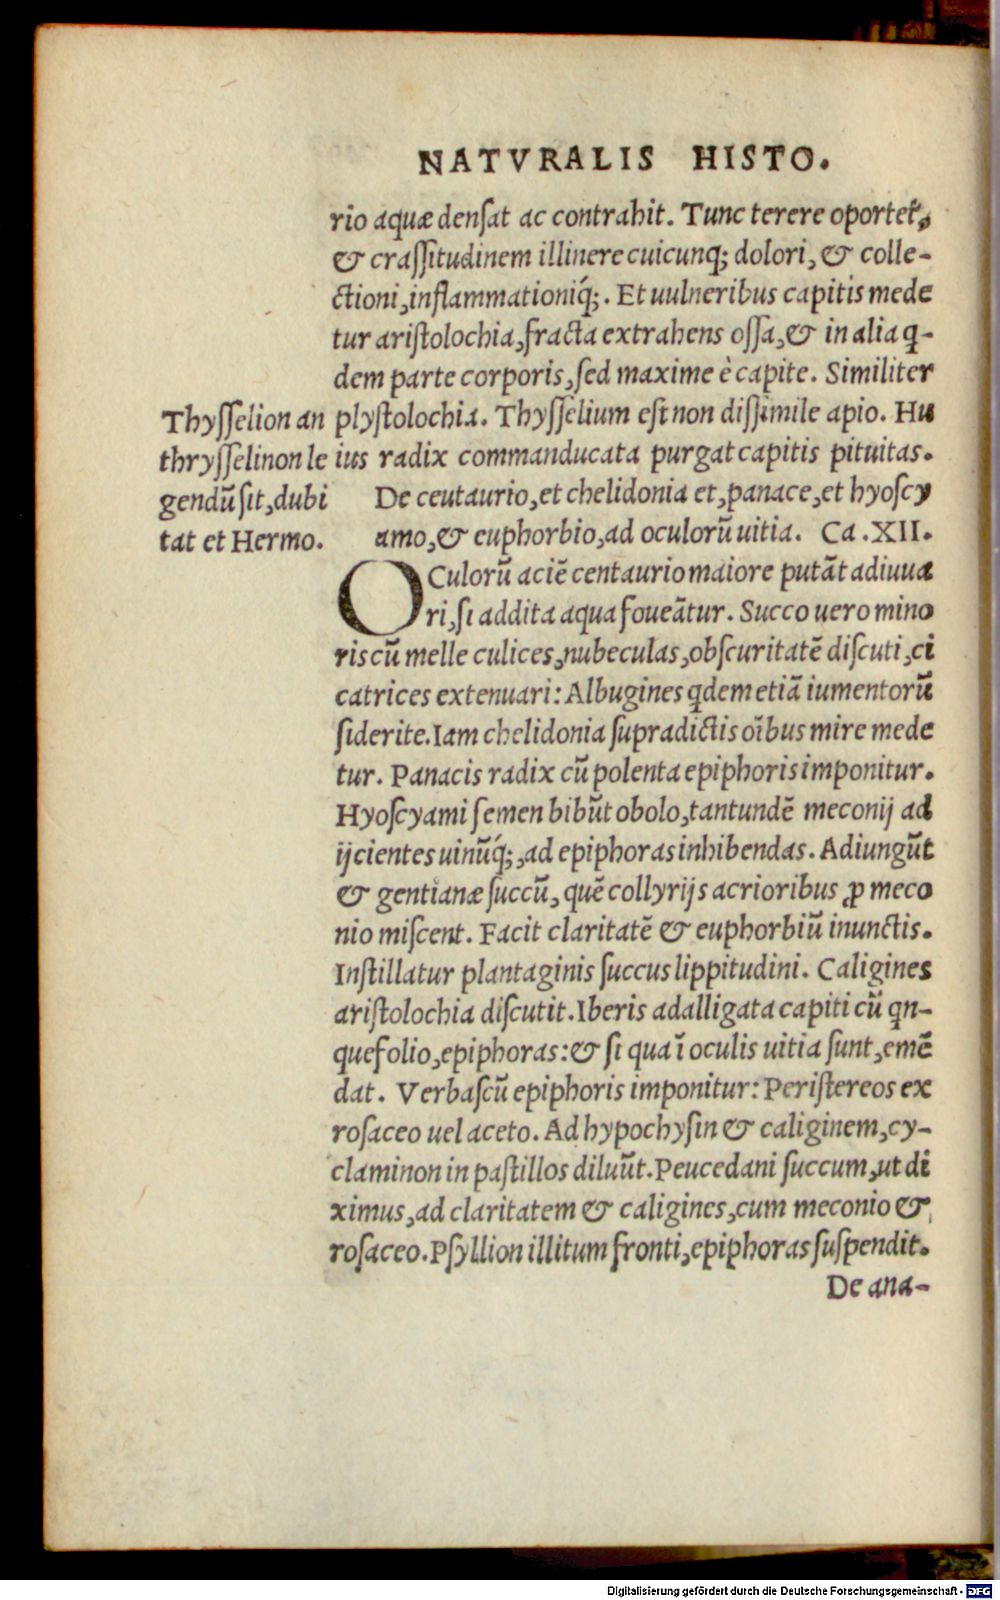 NATVRALIS HISTO.
rio aquæ denſat ac contrahit. Tunc terere oportet,
& craſſitudinem illinere cuicunq; dolori, & colle-
ctioni, inflammationiq́;. Et uulneribus capitis mede
tur ariſtolochia, fracta extrahens oſſa, & in alia q̃-
dem parte corporis, ſed maxime è capite. Similiter
plyſtolochia. Thyſſelium eſt non diſſimile apio. Hu
ius radix commanducata purgat capitis pituitas.
Thyſſelion an
thryſſelinon le
gendũ ſit, dubi
tat et Hermo.
De ceutaurio, et chelidonia et, panace, et hyoſcy
amo, & euphorbio, ad oculorũ uitia. Ca. XII.
OCulorũ aciẽ centaurio maiore putãt adiuua
ri, ſi addita aqua foueãtur. Succo uero mino
ris cũ melle culices, nubeculas, obſcuritatẽ diſcuti, ci
catrices extenuari: Albugines q̃dem etiã iumentorũ
ſiderite. Iam chelidonia ſupradictis oĩbus mire mede
tur. Panacis radix cũ polenta epiphoris imponitur.
Hyoſcyami ſemen bibũt obolo, tantundẽ meconij ad
ijcientes uinũq́;, ad epiphoras inhibendas. Adiungũt
& gentianæ ſuccũ, quẽ collyrijs acrioribus ꝓ meco
nio miſcent. Facit claritatẽ & euphorbiũ inunctis.
Inſtillatur plantaginis ſuccus lippitudini. Caligines
ariſtolochia diſcutit. Iberis adalligata capiti cũ q̃n-
quefolio, epiphoras: & ſi qua ĩ oculis uitia ſunt, emẽ
dat. Verbaſcũ epiphoris imponitur: Periſtereos ex
roſaceo uel aceto. Ad hypochyſin & caliginem, cy-
claminon in paſtillos diluũt. Peucedani ſuccum, ut di
ximus, ad claritatem & caligines, cum meconio &
roſaceo. Pſyllion illitum fronti, epiphoras ſuſpendit.
De ana-
Digitalisierung gefördert durch die Deutsche Forschungsgemeinschaft - DFG